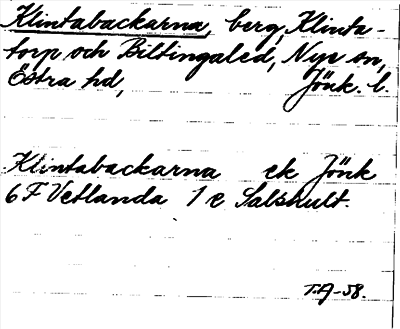 Klintabackarna, berg, Klinta-
torp och Biltingaled, Nye sn,
Östra hd, Jönk. l.
Klintabackarna ek Jönk
6 F Vetlanda 1 e Salshult.
T.A-58.